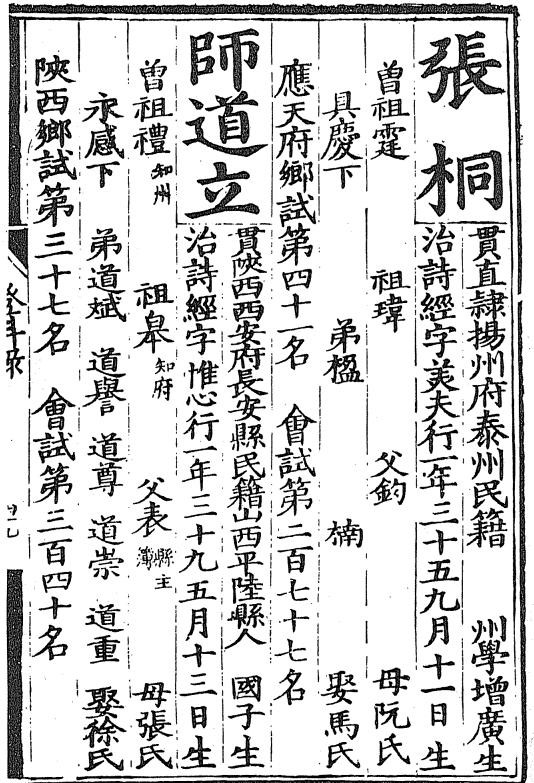 張桐
貫直隷揚州府泰州民籍 州學增廣生
治詩經字美夫行一年三十五九月十一日生
曾祖霆 祖瑋 父鈞 母阮氏
具慶下 弟楹 楠 娶馬氏
應天府鄉試第四十一名 會試第二百七十七名
師道立
貫陝西西安府長安縣民籍山西平陸縣人 國子生
治詩經字惟心行一年三十九五月十三日生
曾祖禮知州 祖皋知府 父表縣主簿 母張氏
永感下 弟道斌 道譽 道尊 道崇 道重 娶徐氏
陝西鄉試第三十七名 會試第三百四十名